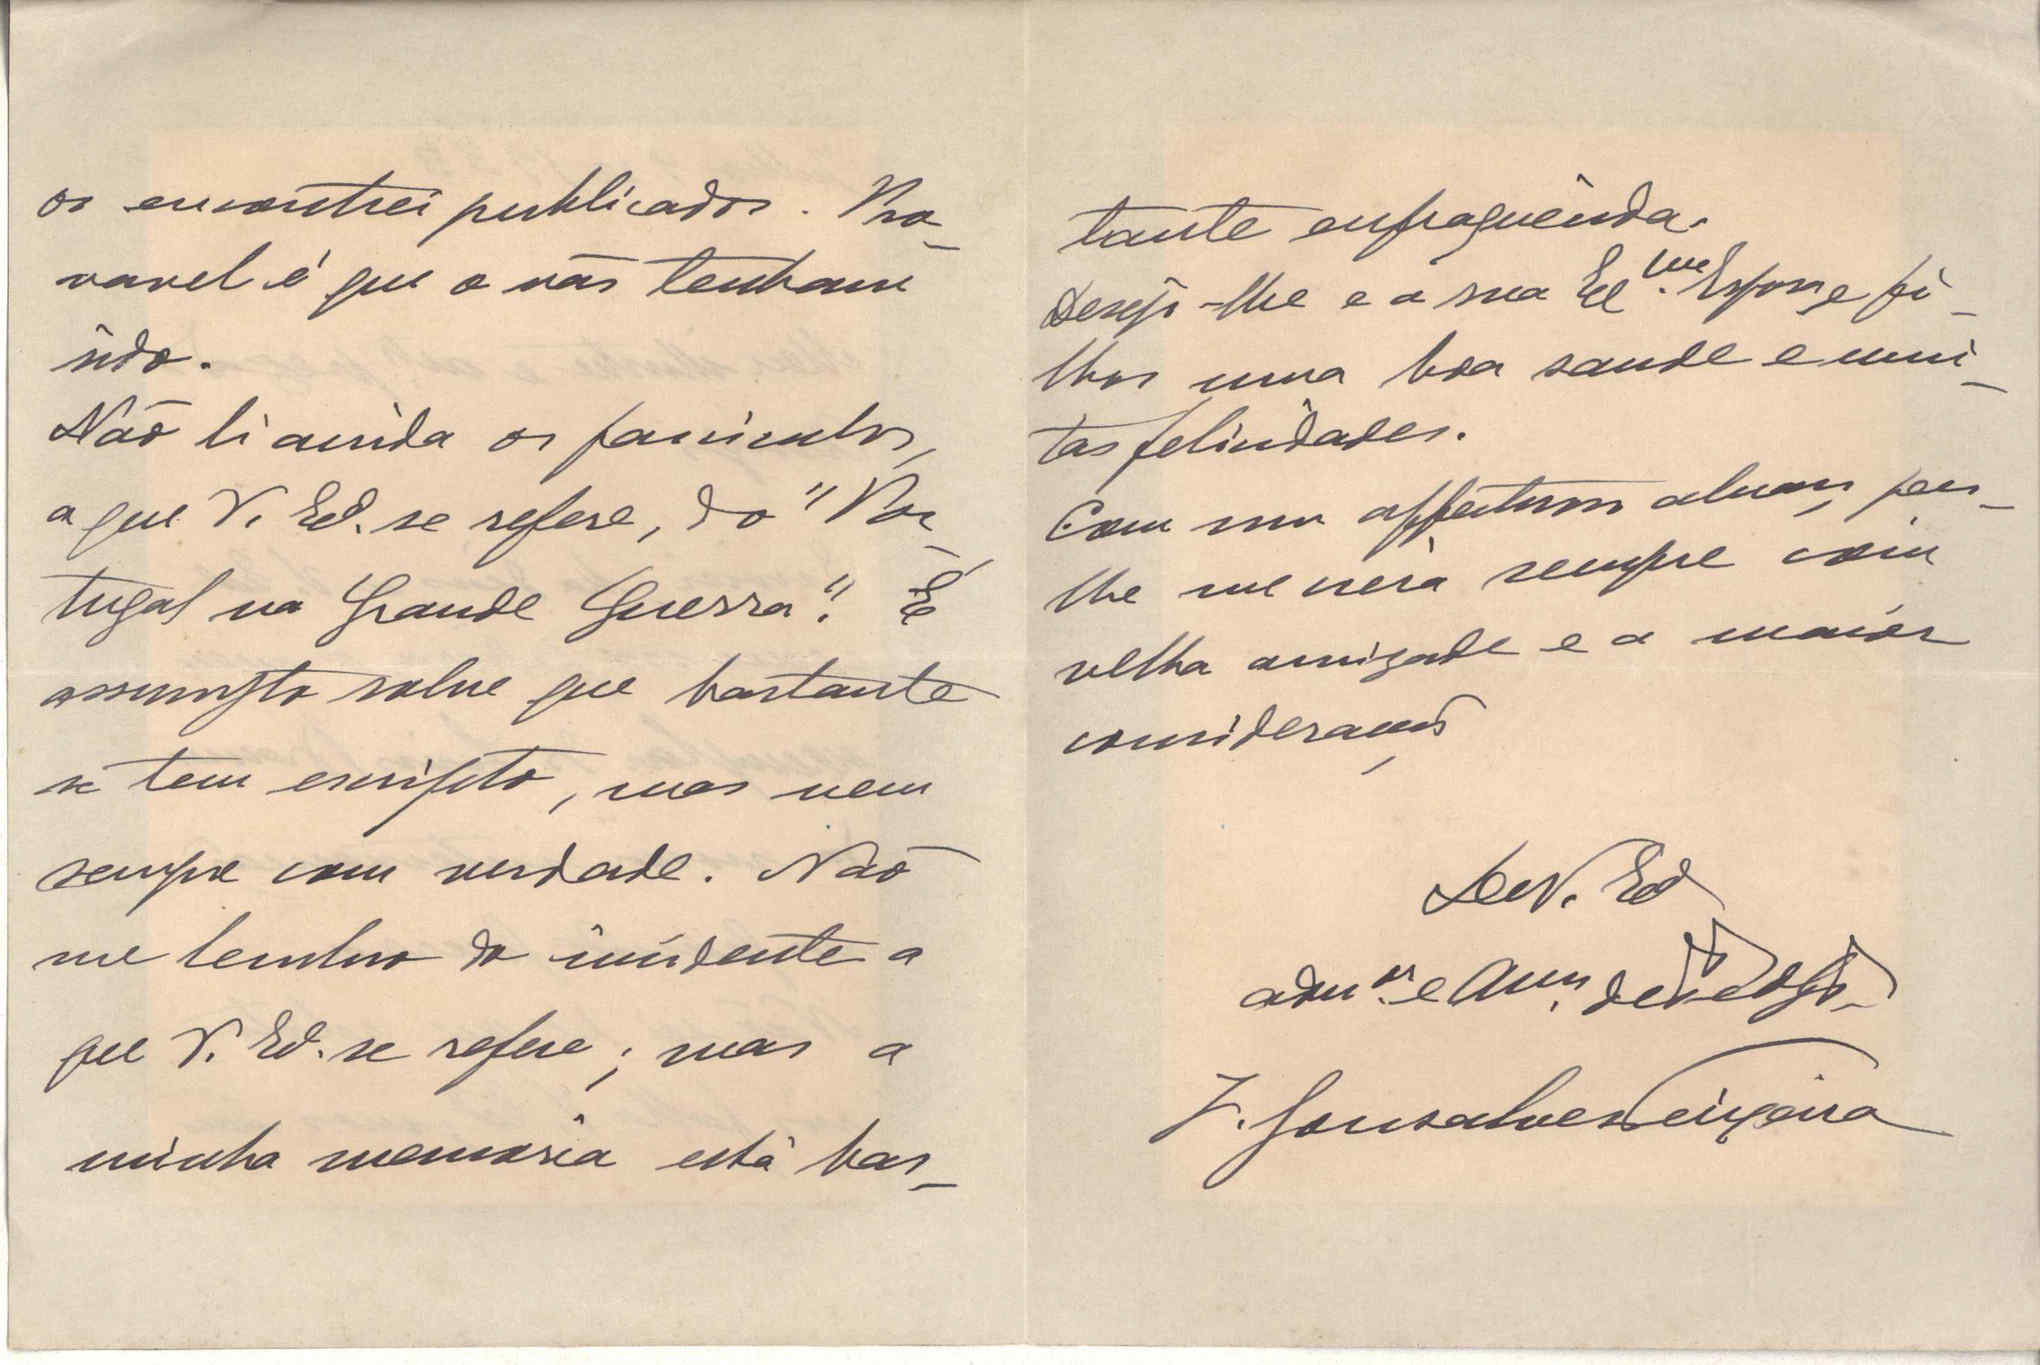 os encontrei publicados. Pro-
vavel é que o não tenham
sido.
Não li ainda os fasciculos,
a que V. Exª. se refere, do "Por-
tugal na Grande Guerra". É
assumpto sobre que bastante
se tem escripto, mas nem
sempre com verdade. Não
me lembro do incidente a
que V. Exª. se refere; mas a
minha memoria está bas-
tante enfraquecida.
Desejo-lhe e a sua Exᵐᵃ. Esposa e fi-
lhos uma boa saude e mui-
tas felicidades.
Com um affectuoso abraço, pede-
lhe me creia sempre com
velha amizade e a maior
consideração
De V. Exª
admᵒʳ. e amᵒ. dedº
J. Gonsalves Teixeira